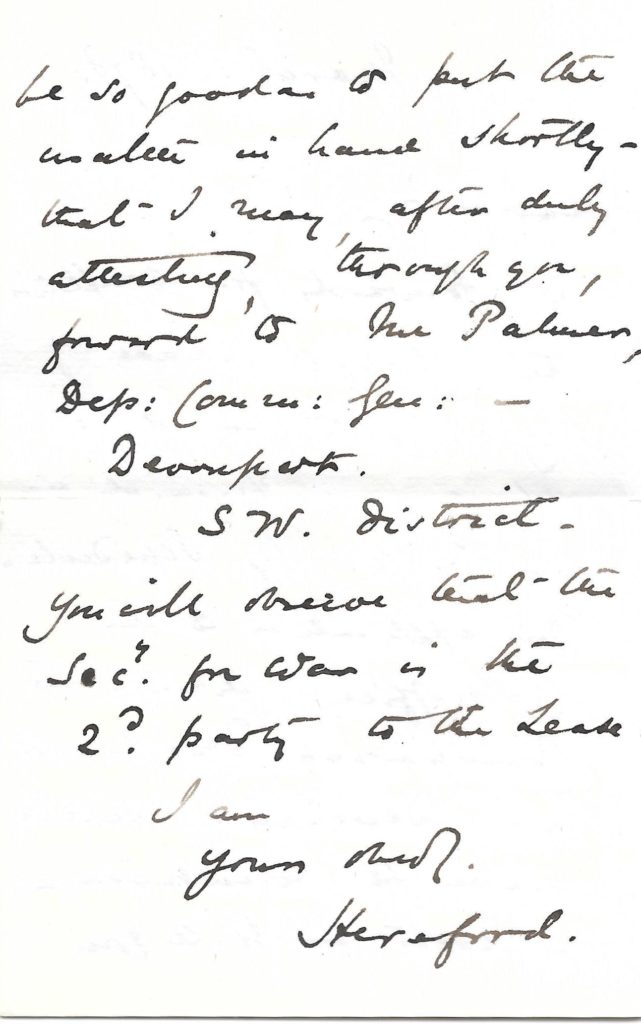 be so good as to put the
matter in hand shortly -
that I may, after duly
attesting, through you,
forward to Mr Palmer,
Dep: Comm: Gen: —
Devonport.
S W. District -
You will observe that the
Secʸ. for War is the
2ᵈ. party to the Lease.
I am
yours obedᵗ.
Hereford.